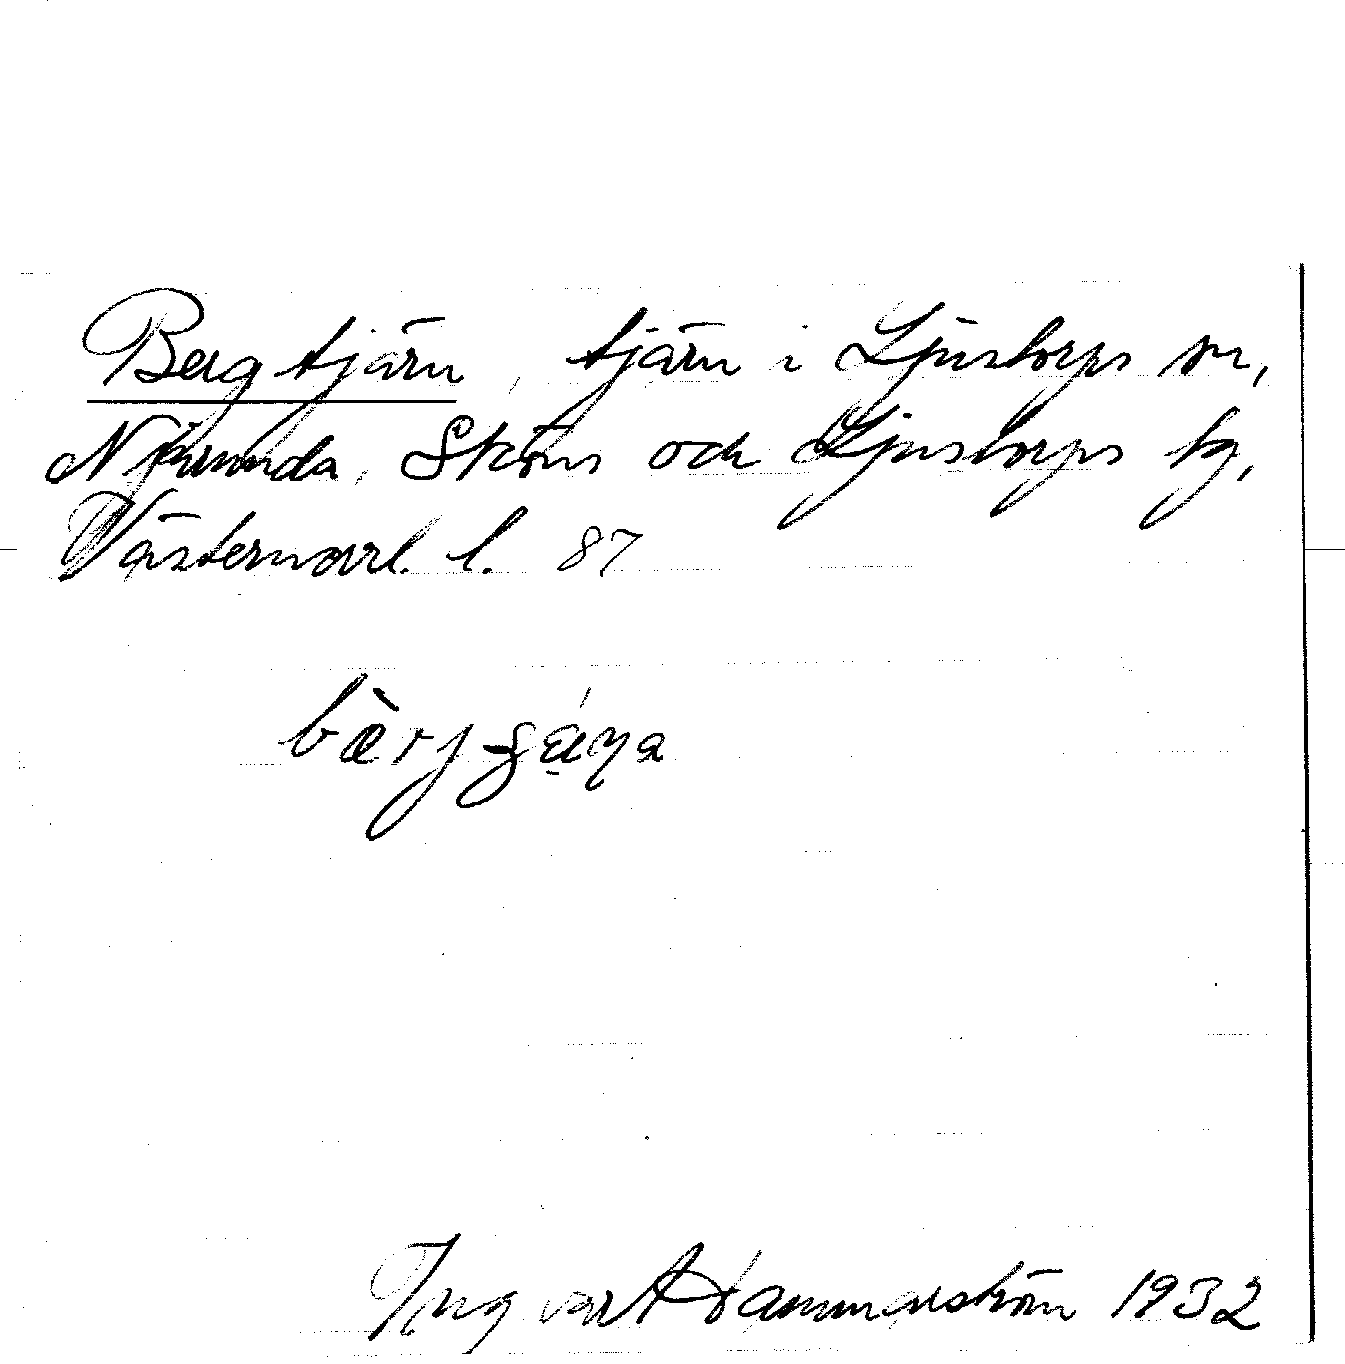 Bergtjärn, tjärn i Ljustorps sn,
Njurunda, Sköns och Ljustorps tg,
Västernorrl. l. 87
Ingvart Hammarström 1932